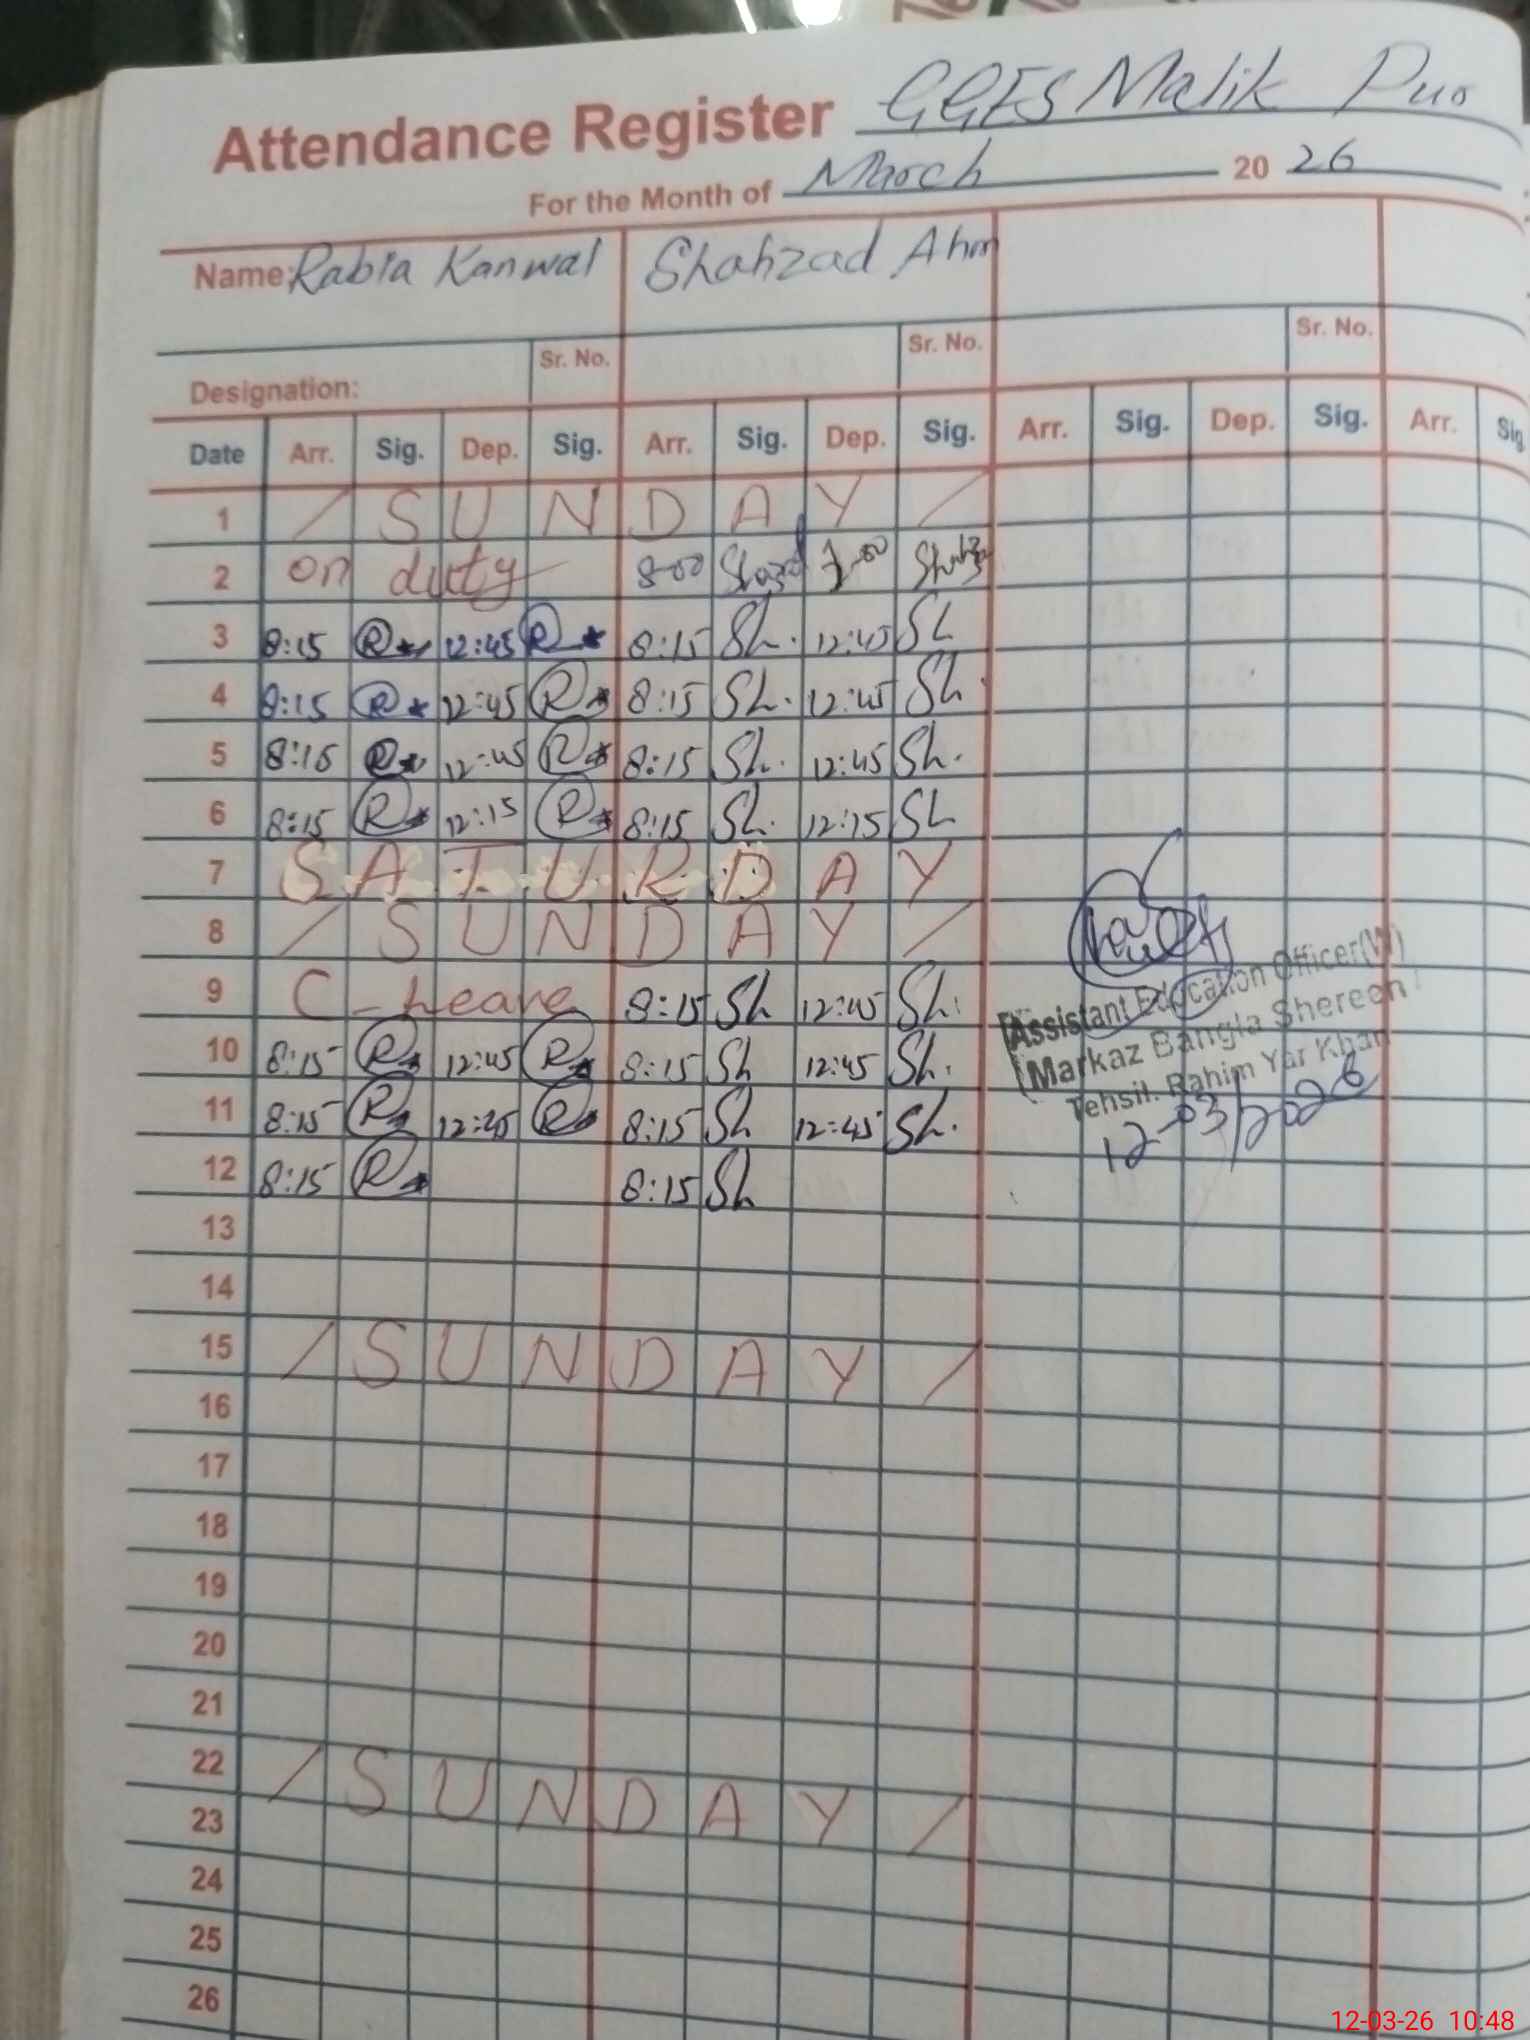 Attendance Register GGES Malik Pur
For the Month of March 20 26
Name: Rabia Kanwal Shahzad Ahm
Sr. No. Sr. No. Sr. No.
Designation:
Date Arr. Sig. Dep. Sig. Arr. Sig. Dep. Sig. Arr. Sig. Dep. Sig. Arr. Sig
1 / S U N D A Y /
2 on duty 8-00
3 8:15 R 12:45 R 8:15 Sh. 12:45 Sh
4 8:15 R 12:45 R 8:15 Sh. 12:45 Sh.
5 8:15 R 12:45 R 8:15 Sh. 12:45 Sh.
6 8:15 R 12:15 R 8:15 Sh. 12:15 Sh
7 S A T U R D A Y
8 / S U N D A Y /
9 C-Leave 8:15 Sh 12:45 Sh.
10 8:15 R 12:45 R 8:15 Sh 12:45 Sh.
11 8:15 R 12:45 R 8:15 Sh 12:45 Sh.
12 8:15 R 8:15 Sh
Assistant Education Officer(W)
Markaz Bangla Shereen
Tehsil. Rahim Yar Khan
12-03/2026
13
14
15 / S U N D A Y /
16
17
18
19
20
21
22 / S U N D A Y /
23
24
25
26
12-03-26 10:48